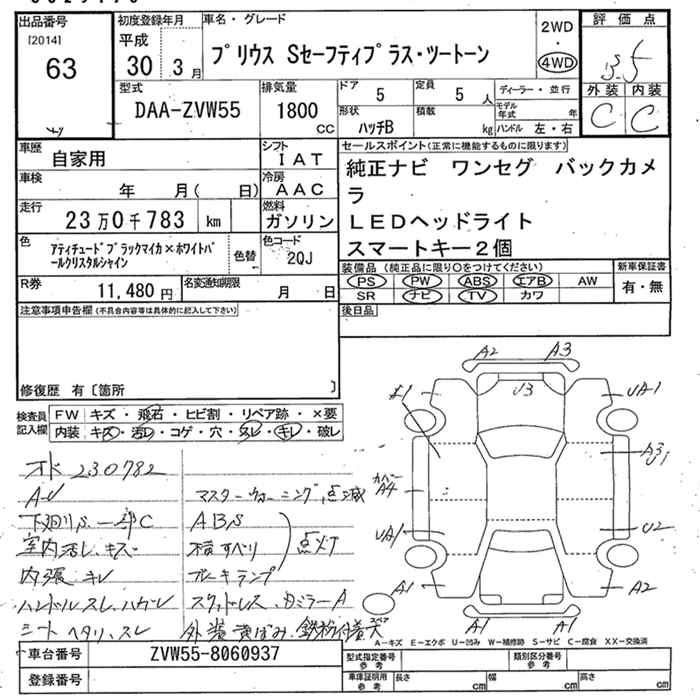 出品番号
[2014]
63
初度登録年月
平成
30 3月
車名・グレード
プリウス Sセーフティプラス・ツートーン
2WD
4WD
評価点
3.5
外装 内装
C C
型式
DAA-ZVW55
排気量
1800 CC
ドア 5
定員 5 人
ディーラー・並行
モデル年式 年
形状 ハッチB
積載 kg
ハンドル 左・右
車歴 自家用
シフト IAT
車検 年 月( 日)
冷房 AAC
走行 23万0千783 km
燃料 ガソリン
色 アティチュードブラックマイカ×ホワイトパールクリスタルシャイン
色替
色コード 2QJ
R券 11,480円
名変通知期限 月 日
セールスポイント(正常に機能するものに限ります)
純正ナビ ワンセグ バックカメ
ラ
LEDヘッドライト
スマートキー2個
装備品(純正品に限り○をつけてください)
新車保証書
PS PW ABS エアB AW
SR ナビ TV カワ
有・無
注意事項申告欄(不具合内容等は具体的に記入して下さい)
後日品
修復歴 有〔箇所 〕
検査員記入欄
FW キズ・飛石・ヒビ割・リペア跡・×要
内装 キズ・汚れ・コゲ・穴・スレ・キレ・破レ
230782
A・U
下廻りS 一部C
室内汚し、キズ
内張 キレ
ハンドルスレ、ハガレ
シート ヘタリ、スレ
マスターウォーニング点滅
ABS
横すべり
ブレーキランプ
点灯
スタッドレス、カミラーA
外装黄ばみ、鉄粉付着大
A2 A3
J3
UA1
A3
U1
カバー
A4
UA1
U2
A1
A2
A1 A1
A-キズ E-エクボ U-凹み W-補修跡 S-サビ C-腐食 XX-交換済
車台番号 ZVW55-8060937
登録番号
型式指定番号 参考
類別区分番号 参考
車庫証明用 参考
長さ cm
幅 cm
高さ cm